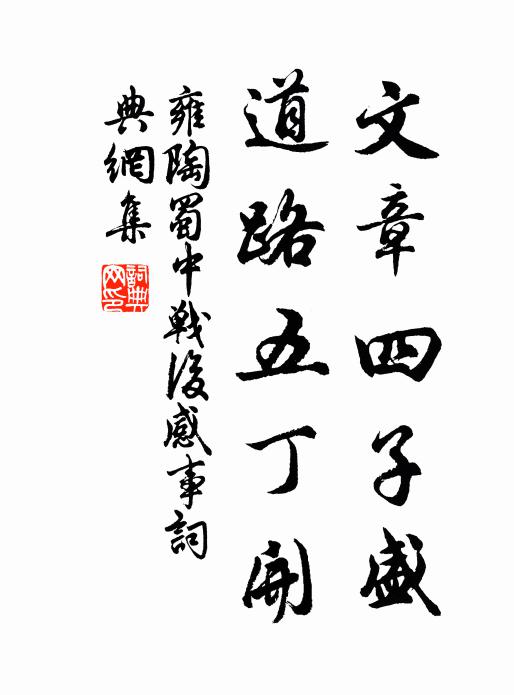 文章四子盛
道路五丁開
雍陶蜀中戰後感事詞
典網集
詞典網印